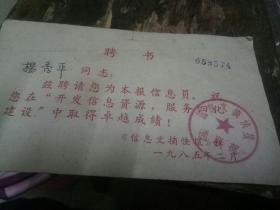 聘书
659574
杨秀平 同志:
兹聘请您为本报信息员。祝
您在“开发信息资源,服务四化
建设”中取得卓越成绩!
《信息文摘报》
一九八五年二月